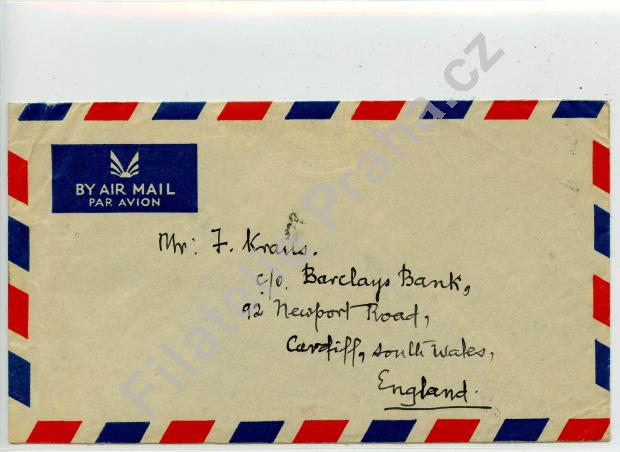 BY AIR MAIL
PAR AVION
Mr: F. Kraus.
c/o. Barclays Bank,
92 Newport Road,
Cardiff, south Wales,
England.
Filatelie Praha.cz